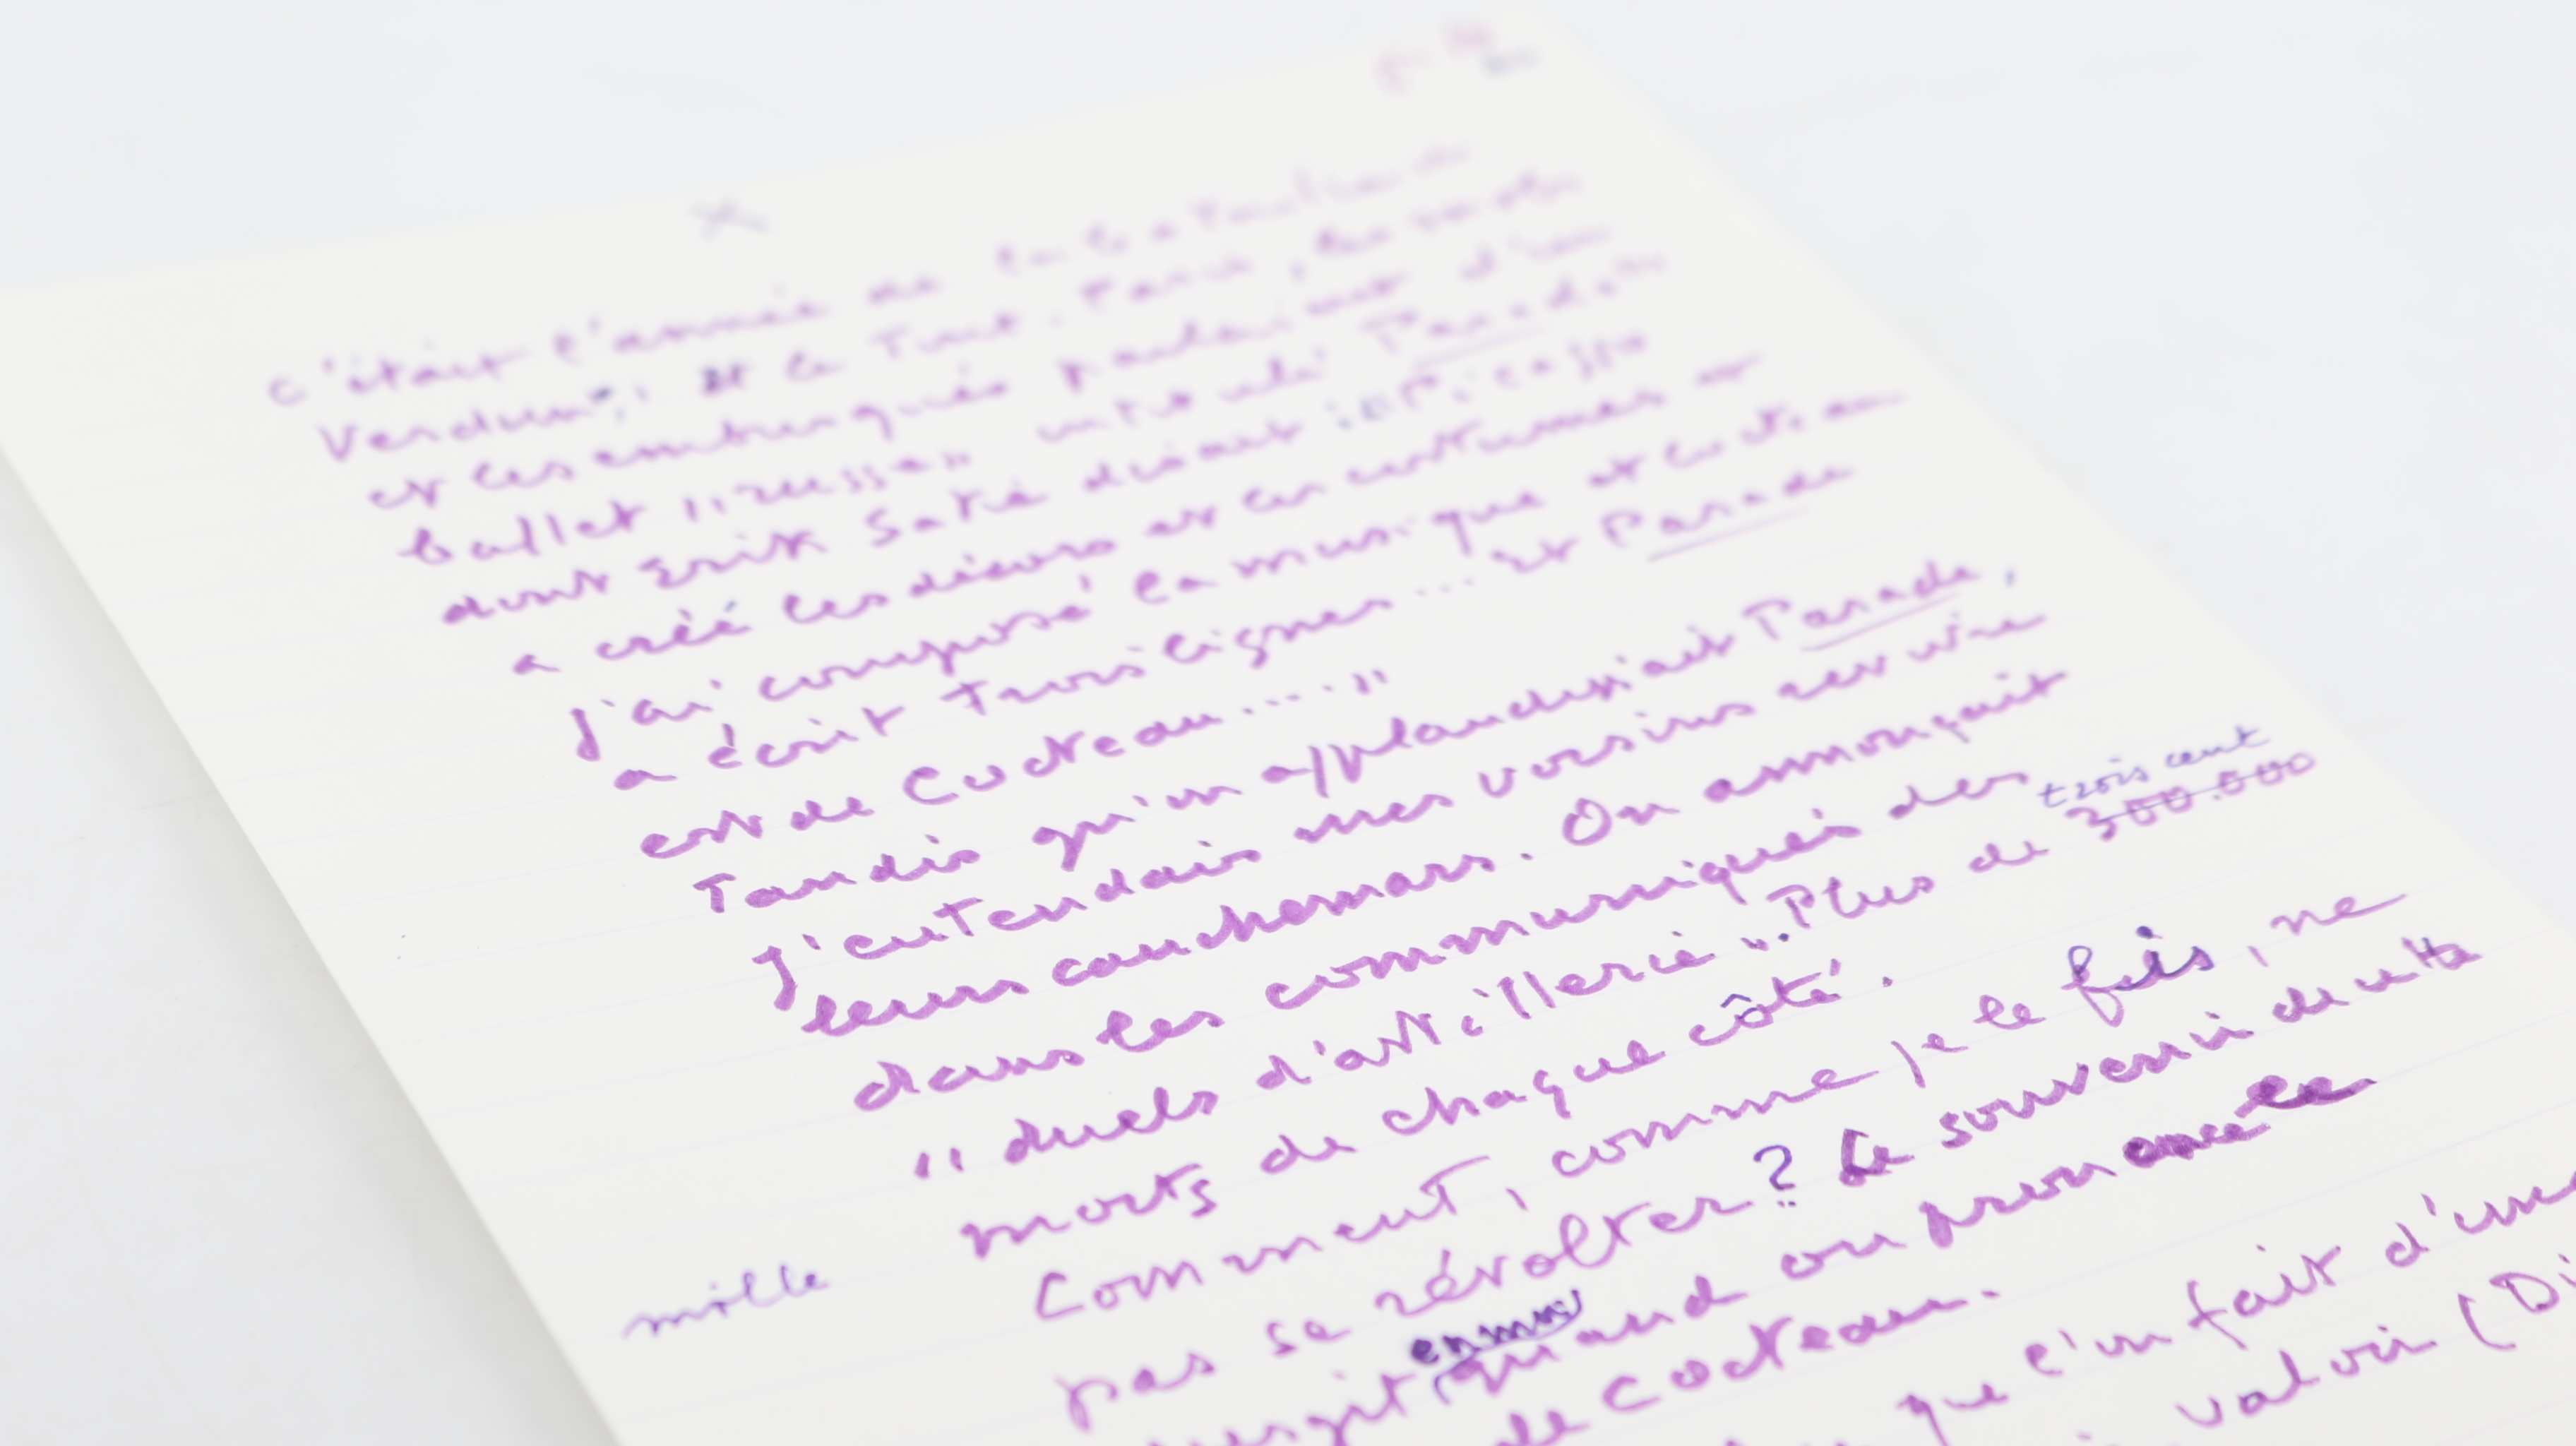 C'était l'année de la bataille de
Verdun, et le Tout-Paris, les
et les embusqués parlaient d'un
ballet "russe" intitulé Parade
dont Erik Satie disait : "Picasso
a créé les décors et les costumes et
j'ai composé la musique et Cocteau
a écrit trois lignes ... et Parade
est de Cocteau....."
Tandis qu'on applaudissait Parade,
j'entendais mes voisins revivre
leurs cauchemars. On annonçait
dans les communiqués des
trois cent
"duels d'artillerie". Plus de 300.000
mille
morts de chaque côté.
Comment, comme je le fis, ne
pas se révolter ? Le souvenir de cette
en moi
surgit quand on prononce
de Cocteau.
que l'on fait d'une
valoir (Di